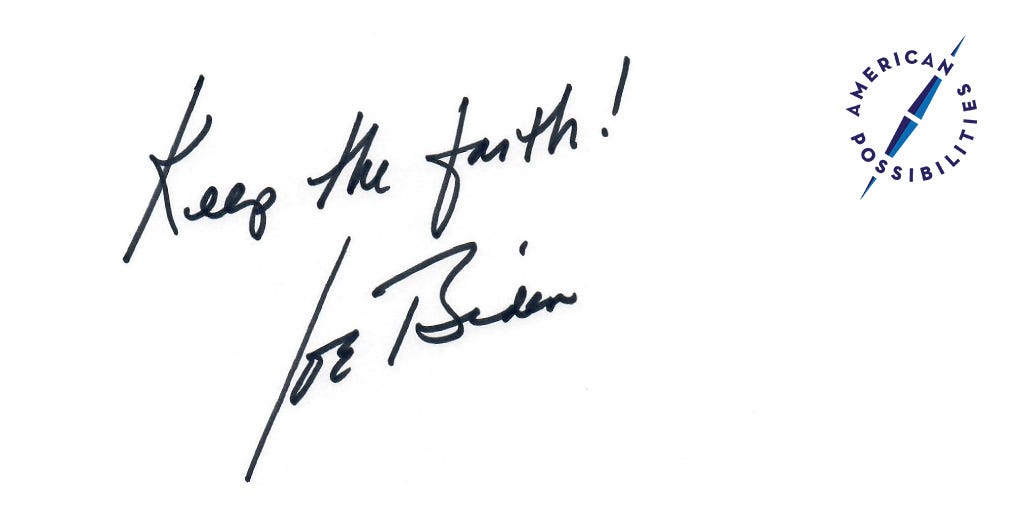 Keep the faith!
Joe Biden
AMERICAN
POSSIBILITIES